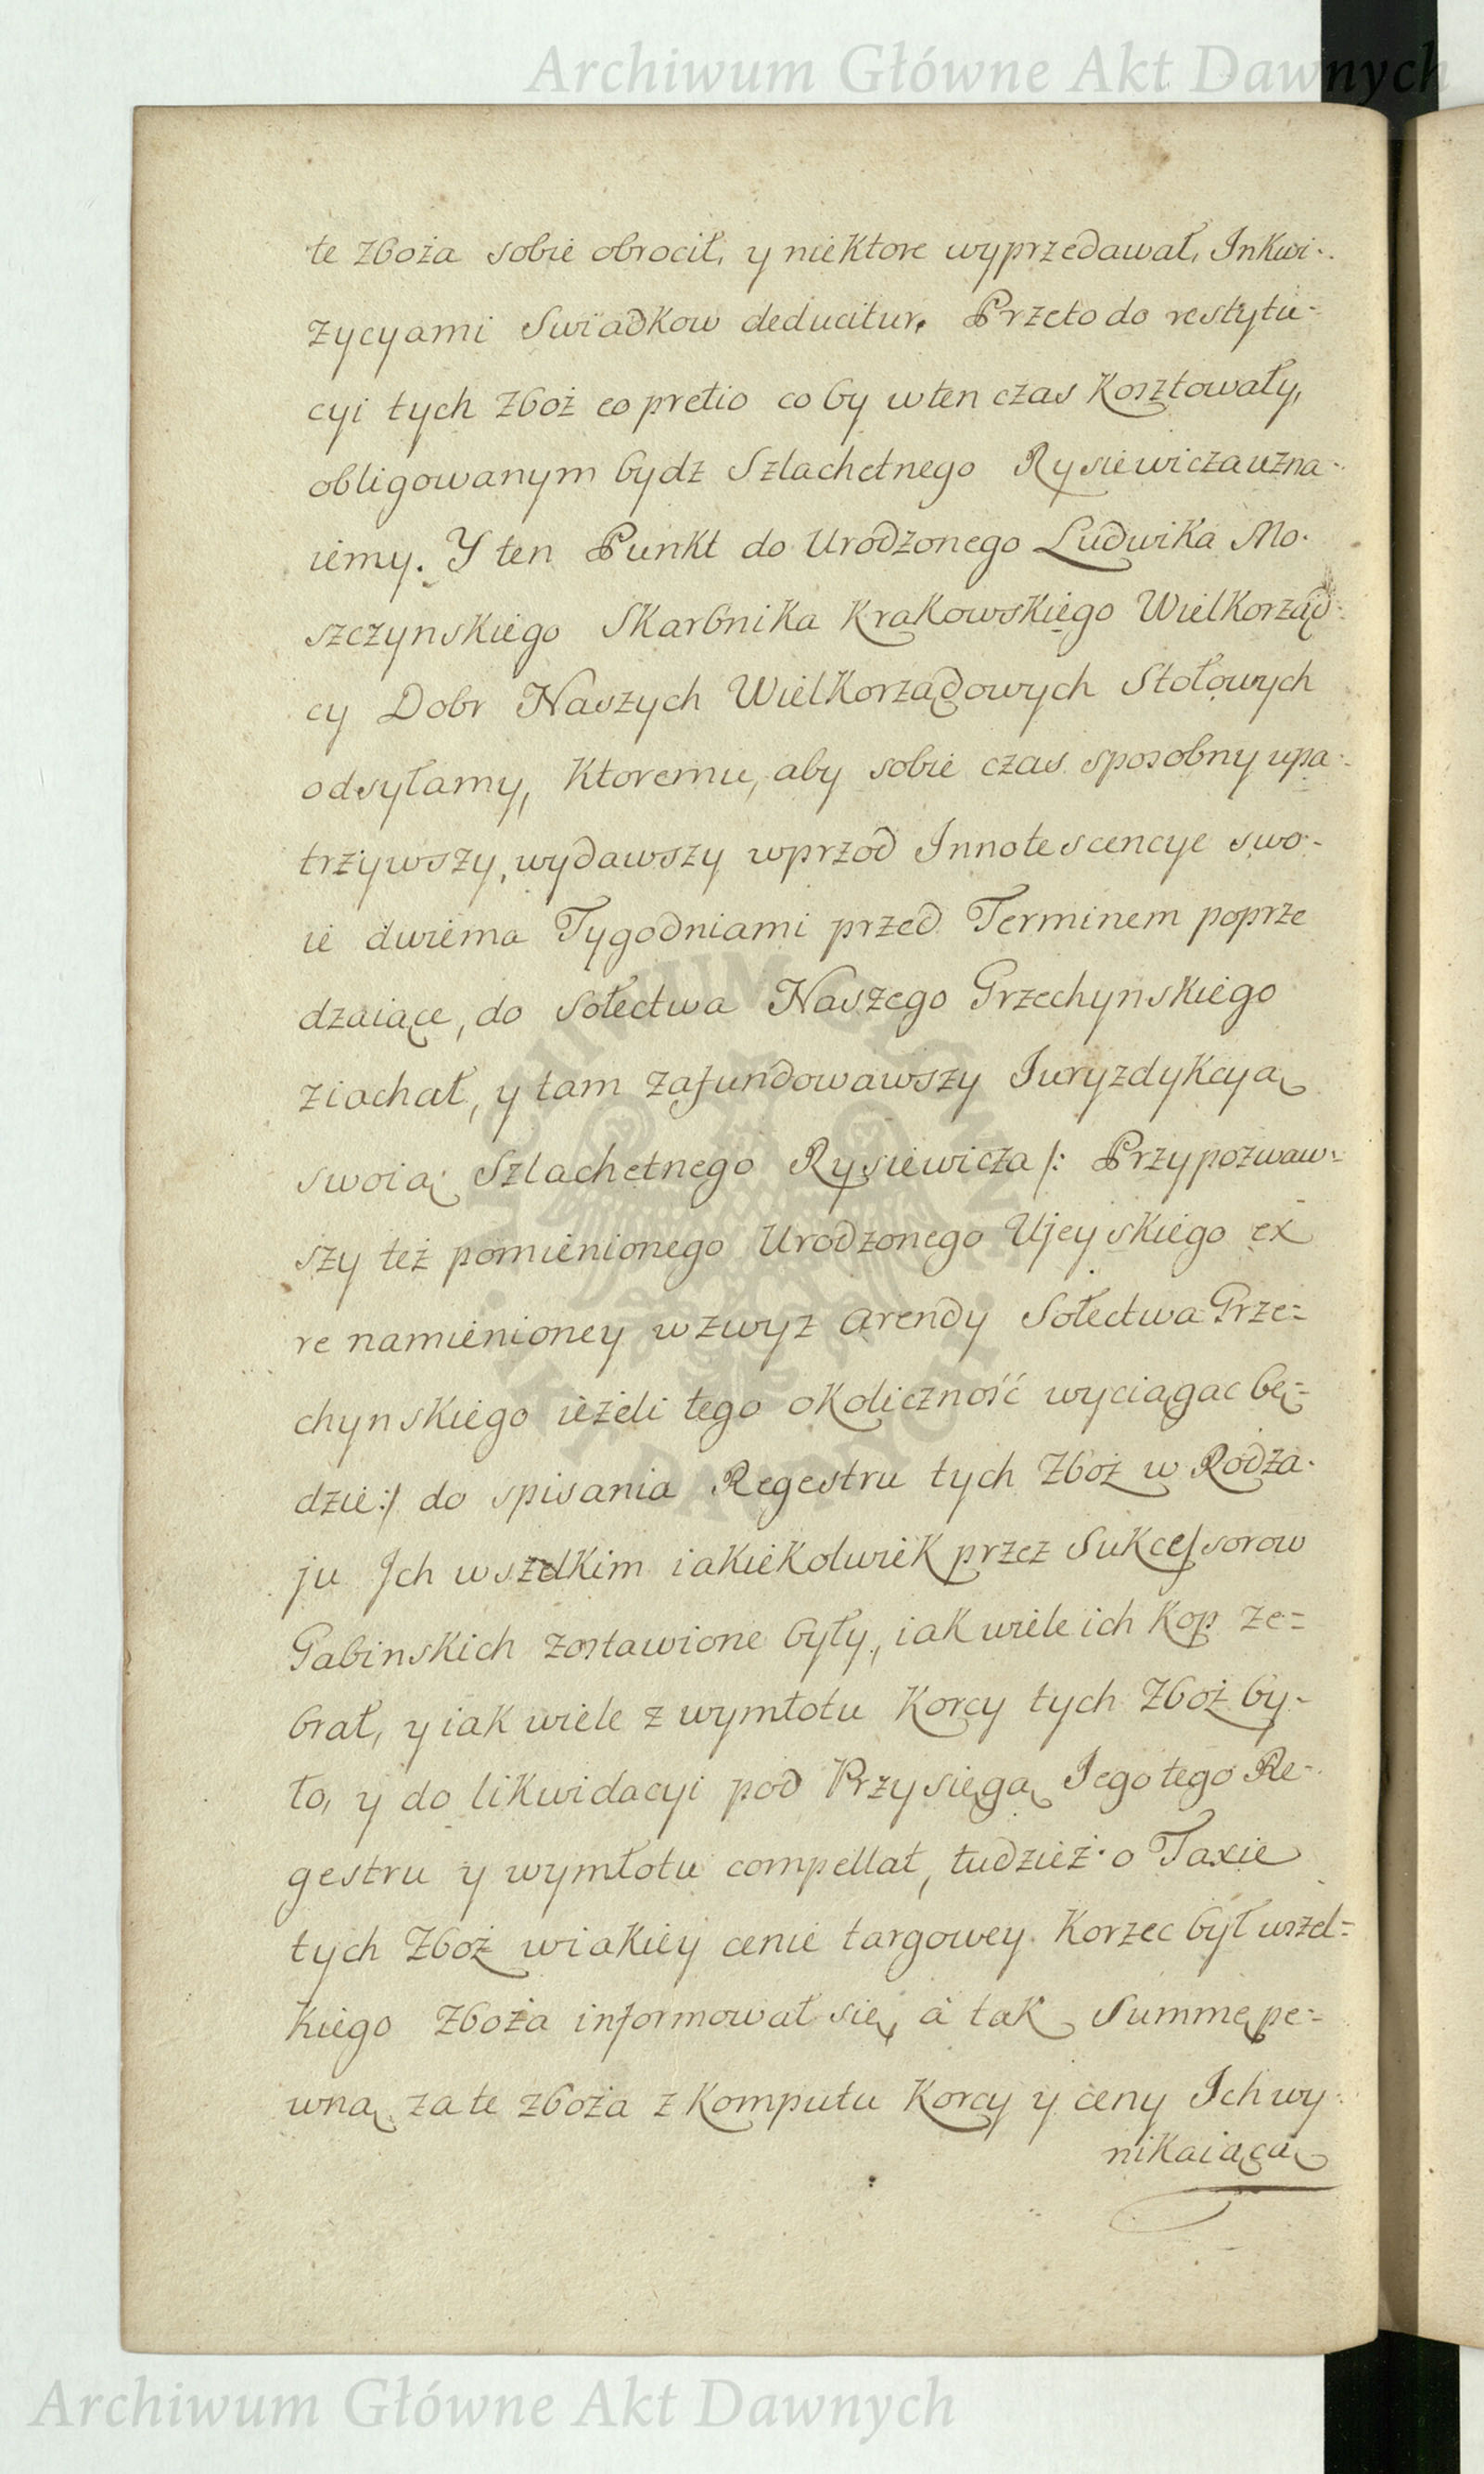 Archiwum Główne Akt Dawnych
te zboża sobie obrocił, y niektore wyprzedawał, Inkwi-
zycyami Swiadkow deducitur. Przeto do restytu-
cyi tych zboż eo pretio co by w ten czas kosztowały,
obligowanym bydz Szlachetnego Rysiewicza uzna-
iemy. Y ten Punkt do Urodzonego Ludwika Mo-
szczynskiego Skarbnika Krakowskiego Wielkorząd-
cy Dobr Naszych Wielkorządowych Stołowych
odsyłamy, ktoremu, aby sobie czas sposobny upa-
trzywszy, wydawszy wprzod Innotescencye swo-
ie dwiema Tygodniami przed Terminem poprze
dzaiące, do Sołectwa Naszego Grzechynskiego
ziachał, y tam zafundowawszy Iuryzdykcyą
swoią Szlachetnego Rysiewicza /: Przypozwaw-
szy też pomienionego Urodzonego Ujeyskiego ex
re namienioney wzwyz arendy Sołectwa Grze=
chynskiego ieżeli tego okoliczność wyciągac bę=
dzie :/ do spisania Regestru tych Zboż w Rodza-
ju Ich wszelkim iakiekolwiek przez Sukcessorow
Gabinskich zostawione były, iak wiele ich kop ze=
brał, y iak wiele z wymłotu Korcy tych Zboż by-
ło, y do likwidacyi pod Przysięgą Jego tego Re-
gestru y wymłotu compellat, tudzież o Taxie
tych Zboż w iakiey cenie targowey Korzec był wszel=
kiego Zboża informował się, a tak Summę pe=
wną za te zboża z Komputu Korcy y ceny Ich wy-
nikaiącą
Archiwum Główne Akt Dawnych